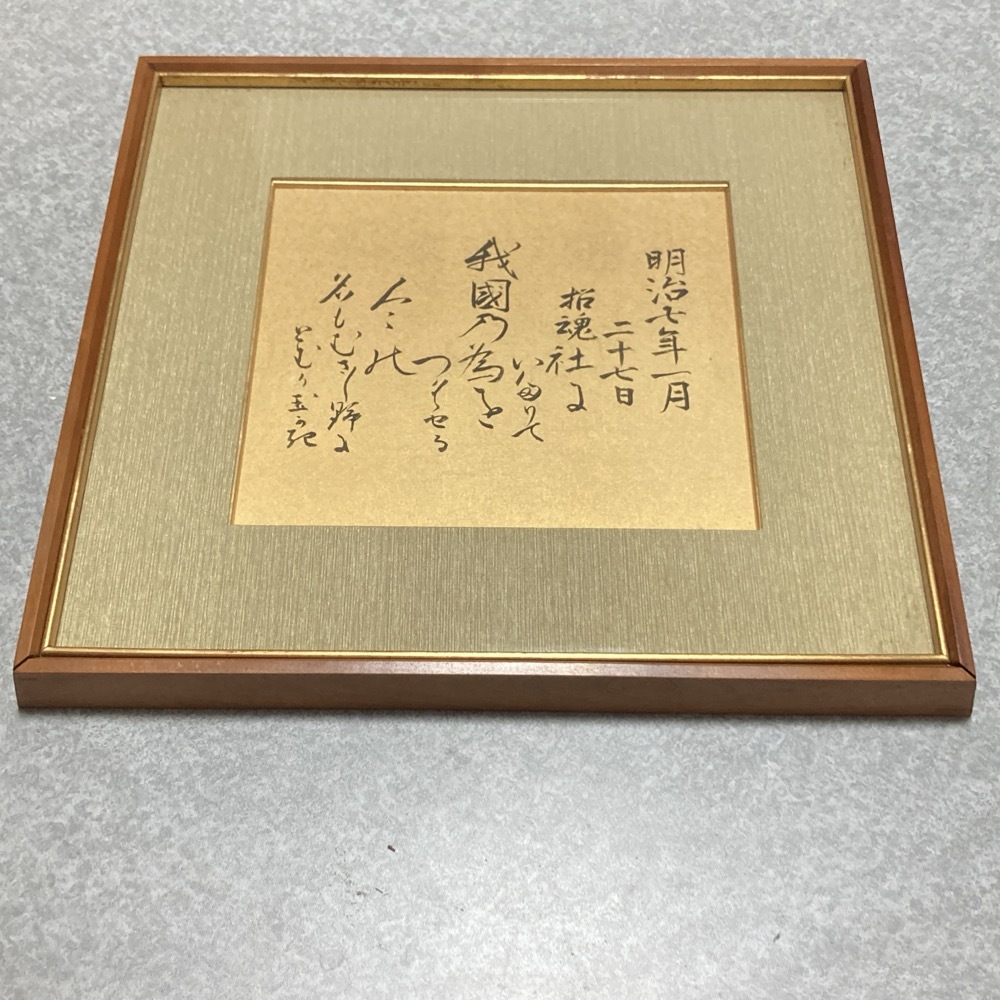 明治七年一月
二十七日
招魂社尓
いたりて
我國乃為を
つくせる
人々能
名もむさし野尓
とむる玉可記